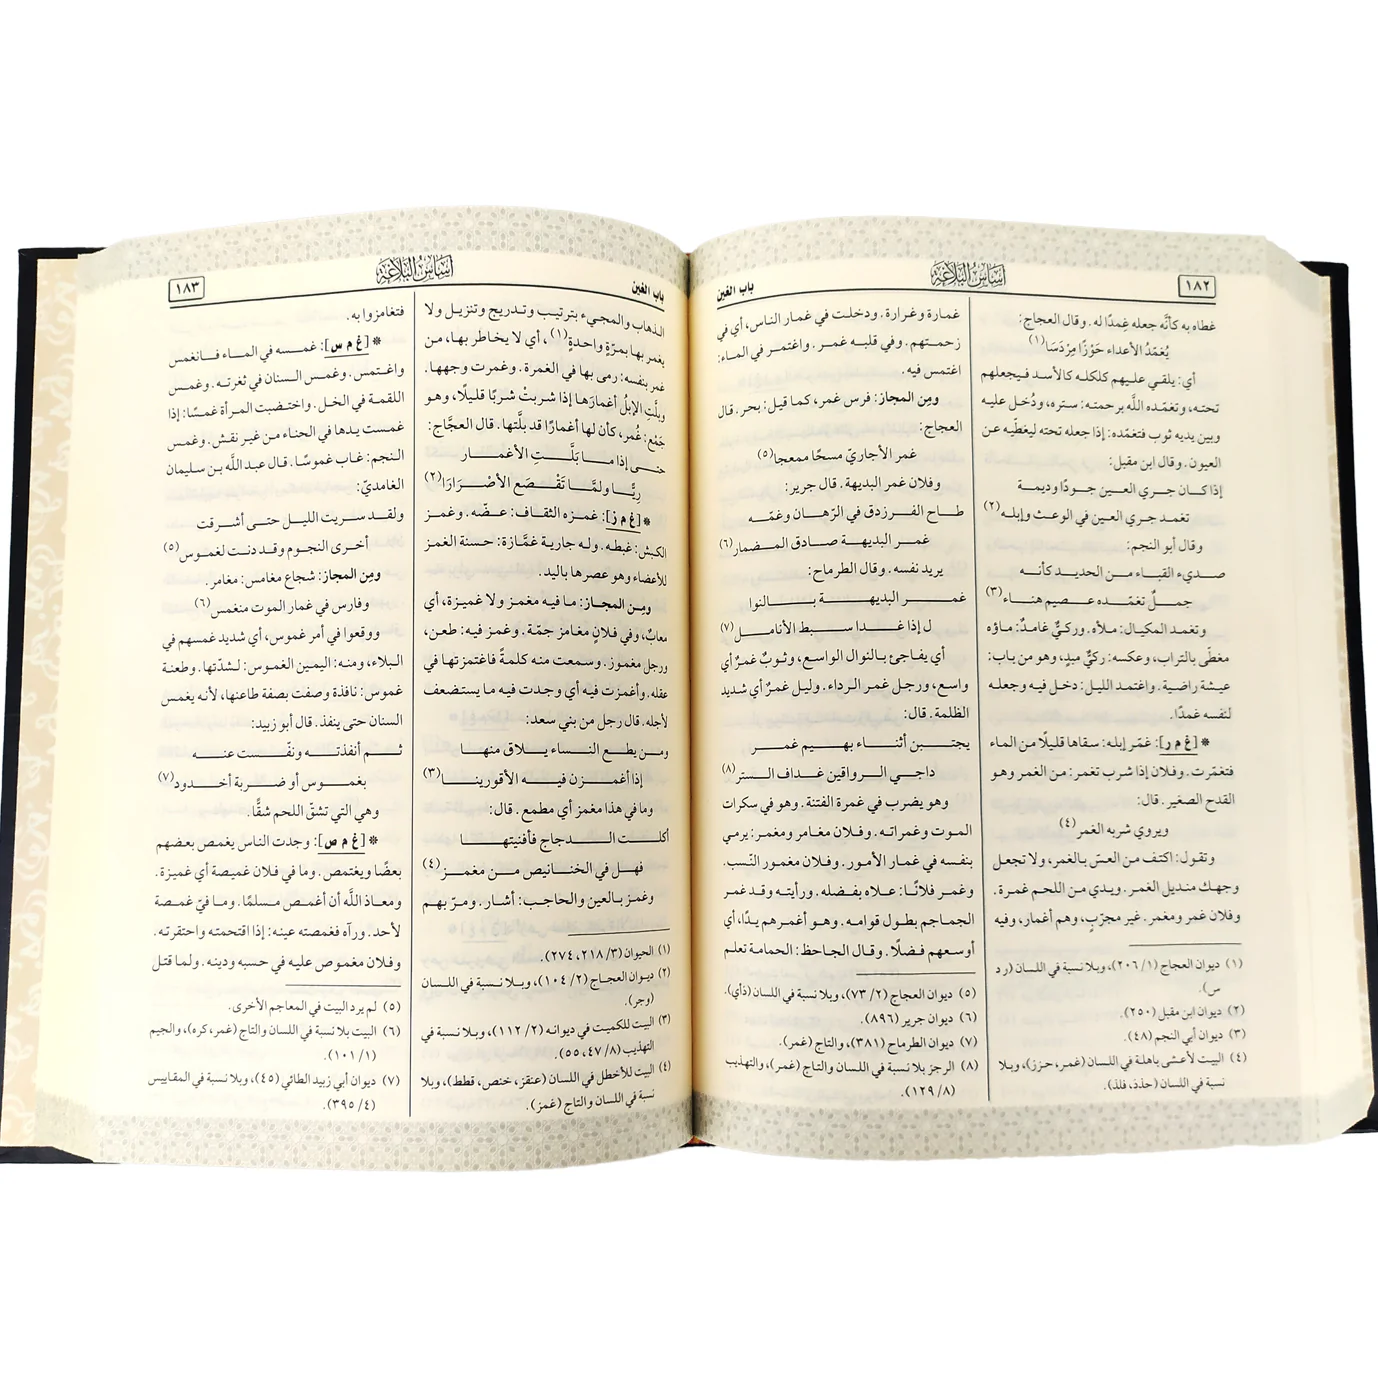 ١٨٢
أساس البلاغة
باب الغين
غطاه به كأنَّه جعله غِمدًا له. وقال العجاج:
يُغمّدُ الأعداء جَوْزًا مِرْدَسَا(١)
أي: يلقي عليهم كلكله كالأسد فيجعلهم
تحته، وتغمّده اللَّه برحمته: ستره، ودُخل عليه
وبين يديه ثوب فتغمّده: إذا جعله تحته ليغطّيه عن
العيون. وقال ابن مقبل:
إذا كان جري العين جودًا وديمة
تغمد جري العين في الوعث وإبله(٢)
وقال أبو النجم:
صديء القباء من الحديد كأنه
جملٌ تغمّده عصيم هناء(٣)
وتغمد المكيال: ملأه. وركيٌّ غامدٌ: ماؤه
مغطّى بالتراب، وعكسه: ركيٌّ مبدٍ، وهو من باب:
عيشة راضية. واغتمد الليل: دخل فيه وجعله
لنفسه غمدًا.
* [غ م ر]: غمّر إبله: سقاها قليلًا من الماء
فتغمّرت. وفلان إذا شرب تغمر: من الغمر وهو
القدح الصغير. قال:
ويروي شربه الغمر(٤)
وتقول: اكتف من العسّ بالغمر، ولا تجعل
وجهك منديل الغمر. ويدي من اللحم غمرة.
وفلان غمر ومغمر. غير مجرّبٍ، وهم أغمار، وفيه
(١) ديوان العجاج (١/ ٢٠٦)، وبلا نسبة في اللسان (رد
س).
(٢) ديوان ابن مقبل (٢٥٠).
(٣) ديوان أبي النجم (٤٨).
(٤) البيت لأعشى باهلة في اللسان (غمر، حزز)، وبلا
نسبة في اللسان (حذذ، فلذ).
غمارة وغرارة. ودخلت في غمار الناس، أي في
زحمتهم. وفي قلبه غمر. واغتمر في الماء:
اغتمس فيه.
ومِن المجاز: فرس غمر، كما قيل: بحر. قال
العجاج:
غمر الأجاريّ مسحًا ممعجا(٥)
وفلان غمر البديهة. قال جرير:
طاح الفرزدق في الرّهان وغمّه
غمر البديهة صادق المضمار(٦)
يريد نفسه. وقال الطرماح:
غمر البديهة بالنوا
ل إذا غدا سبط الأنامل(٧)
أي يفاجئ بالنوال الواسع، وثوبٌ غمرٌ أي
واسع، ورجل غمر الرداء. وليل غمرٌ أي شديد
الظلمة. قال:
يجتبن أثناء بهيم غمر
داجي الرواقين غداف الستر(٨)
وهو يضرب في غمرة الفتنة. وهو في سكرات
الموت وغمراته. وفلان مغامر ومغمر: يرمي
بنفسه في غمار الأمور. وفلان مغمور النّسب.
وغمر فلانًا: علاه بفضله. ورأيته وقد غمر
الجماجم بطول قوامه. وهو أغمرهم يدًا، أي
أوسعهم فضلًا. وقال الجاحظ: الحمامة تعلم
(٥) ديوان العجاج (٢/ ٧٣)، وبلا نسبة في اللسان (ذأي).
(٦) ديوان جرير (٨٩٦).
(٧) ديوان الطرماح (٣٨١)، والتاج (غمر).
(٨) الرجز بلا نسبة في اللسان والتاج (غمر)، والتهذيب
(٨/ ١٢٩).
باب الغين
أساس البلاغة
١٨٣
الذهاب والمجيء بترتيب وتدريج وتنزيل ولا
يغمر بها بمرّةٍ واحدةٍ(١)، أي لا يخاطر بها، من
غمر بنفسه: رمى بها في الغمرة. وغمرت وجهها.
وبلَّتِ الإبلُ أغمارَها إذا شربتْ شربًا قليلًا، وهو
جَمْع: غُمر، كأن لها أغمارًا قد بلَّتها. قال العجَّاج:
حتى إذا ما بَلَّتِ الأغمار
رِيًّا ولمَّا تَقْصَعِ الأصْرَارَا(٢)
* [غ م ز]: غمزه الثقاف: عضّه. وغمز
الكبش: غبطه. وله جارية غمَّازة: حسنة الغمز
للأعضاء وهو عصرها باليد.
ومِن المجاز: ما فيه مغمز ولا غميزة، أي
معابٌ، وفي فلانٍ مغامز جمّة. وغمز فيه: طعن،
ورجل مغموز. وسمعت منه كلمةً فاغتمزتها في
عقله. وأغمزت فيه أي وجدت فيه ما يستضعف
لأجله. قال رجل من بني سعد:
ومن يطع النساء يلاق منها
إذا أغمزن فيه الأقورينا(٣)
وما في هذا مغمز أي مطمع. قال:
أكلت الدجاج فأفنيتها
فهل في الخنانيص من مغمز(٤)
وغمز بالعين والحاجب: أشار. ومرّ بهم
(١) الحيوان (٣/ ٢١٨، ٢٧٤).
(٢) ديوان العجاج (٢/ ١٠٤)، وبلا نسبة في اللسان
(وجر).
(٣) البيت للكميت في ديوانه (٢/ ١١٢)، وبلا نسبة في
التهذيب (٨/ ٤٧، ٥٥).
(٤) البيت للأخطل في اللسان (عنقز، خنص، قطط)، وبلا
نسبة في اللسان والتاج (غمز).
فتغامزوا به.
* [غ م س]: غمسه في الماء فانغمس
واغتمس. وغمس السنان في ثغرته. وغمس
اللقمة في الخل. واختضبت المرأة غمسًا: إذا
غمست يدها في الحناء من غير نقش. وغمس
النجم: غاب غموسًا. قال عبد اللَّه بن سليمان
الغامديّ:
ولقد سريت الليل حتى أشرقت
أخرى النجوم وقد دنت لغموس(٥)
ومِن المجاز: شجاع مغامس: مغامر.
وفارس في غمار الموت منغمس(٦)
ووقعوا في أمر غموس، أي شديد غمسهم في
البلاء، ومنه: اليمين الغموس: لشدّتها. وطعنة
غموس: نافذة وصفت بصفة طاعنها، لأنه يغمس
السنان حتى ينفذ. قال أبو زبيد:
ثم أنفذته ونفّست عنه
بغموس أو ضربة أخدود(٧)
وهي التي تشقّ اللحم شقًّا.
* [غ م ص]: وجدت الناس يغمص بعضهم
بعضًا ويغتمص. وما في فلان غميصة أي غميزة.
ومعاذ اللَّه أن أغمص مسلمًا. وما فيّ غمصة
لأحد. ورآه فغمصته عينه: إذا اقتحمته واحتقرته.
وفلان مغموص عليه في حسبه ودينه. ولما قتل
(٥) لم يرد البيت في المعاجم الأخرى.
(٦) البيت بلا نسبة في اللسان والتاج (غمر، كره)، والجيم
(١/ ١٠١).
(٧) ديوان أبي زبيد الطائي (٤٥)، وبلا نسبة في المقاييس
(٤/ ٣٩٥).